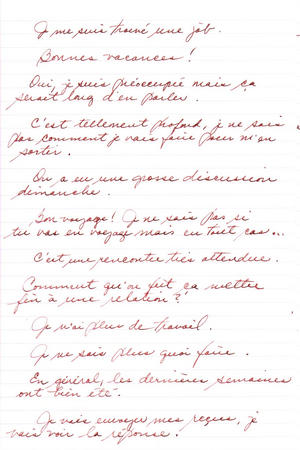 Je me suis trouvé une job.
Bonnes vacances !
Oui, je suis préoccupié mais ça
serait long d'en parler.
C'est tellement profond, je ne sais
pas comment je vais faire pour m'en
sortir.
On a eu une grosse discussion
dimanche.
Bon voyage! Je ne sais pas si
tu vas en voyage mais en tout cas...
C'est une rencontre très attendue.
Comment qu'on fait ça mettre
fin à une relation?
Je n'ai plus de travail.
Je ne sais plus quoi faire.
En général, les dernières semaines
ont bien été.
Je vais envoyer mes reçus, je
vais voir la réponse.